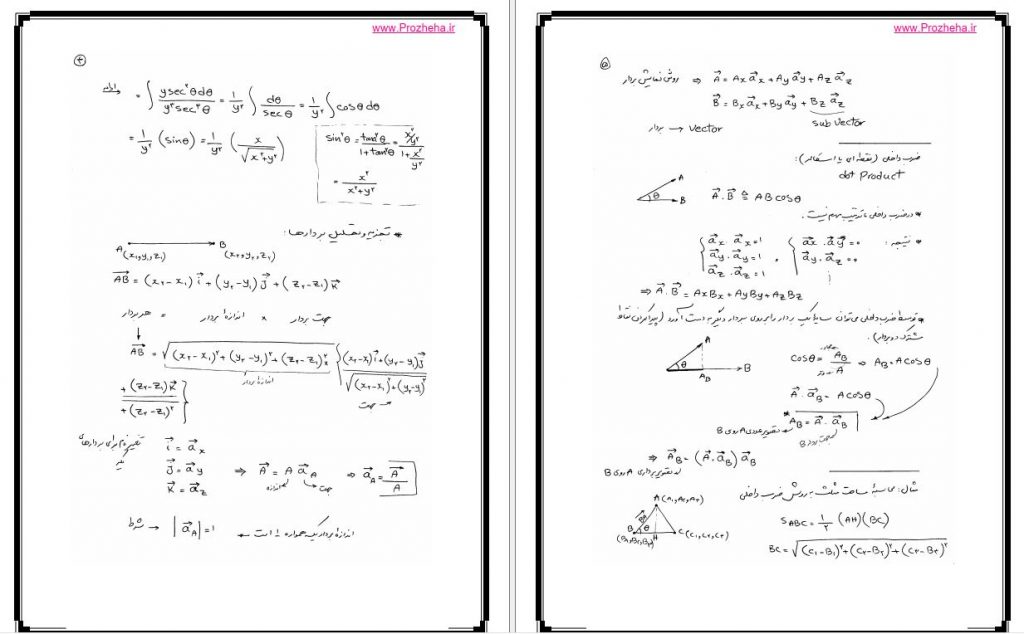 www.Prozheha.ir
۴
ادامه = ∫ y sec^۲θ dθ / y^۳ sec^۳θ = ۱/y^۲ ∫ dθ / secθ = ۱/y^۲ ∫ cosθ dθ
= ۱/y^۲ (sinθ) = ۱/y^۲ (x / √(x^۲+y^۲))
sin^۲θ = tan^۲θ / (۱+tan^۲θ) = (x^۲/y^۲) / (۱+x^۲/y^۲)
= x^۲ / (x^۲+y^۲)
* تجزیه و تحلیل بردارها :
A (x₁,y₁,z₁) B (x₂,y₂,z₂)
AB⃗ = (x₂-x₁) i⃗ + (y₂-y₁) J⃗ + (z₂-z₁) K⃗
هر بردار = اندازهٔ بردار × جهت بردار
AB⃗ = √((x₂-x₁)^۲+(y₂-y₁)^۲+(z₂-z₁)^۲) × { (x₂-x₁) i⃗ + (y₂-y₁) J⃗ / √((x₂-x₁)^۲+(y₂-y₁)^۲
اندازهٔ بردار
جهت
+ (z₂-z₁) K⃗ / + (z₂-z₁)^۲ }
i⃗ = a⃗x
J⃗ = a⃗y ⇒ A⃗ = A a⃗A ⇒ a⃗A = A⃗ / A
اندازه جهت
K⃗ = a⃗z
شرط → |a⃗A| = ۱ اندازهٔ بردار یکه همواره ۱ است
www.Prozheha.ir
۵
روش نمایش بردار ⇒ A⃗ = Ax a⃗x + Ay a⃗y + Az a⃗z
B⃗ = Bx a⃗x + By a⃗y + Bz a⃗z
sub vector
بردار → vector
ضرب داخلی (نقطه‌ای یا اسکالر) :
dot Product
A θ B A⃗ . B⃗ ≜ AB cosθ
* در ضرب داخلی ، ترتیب مهم نیست .
نتیجه : { a⃗x . a⃗x = ۱ , { a⃗x . a⃗y = ۰
a⃗y . a⃗y = ۱ a⃗y . a⃗z = ۰
a⃗z . a⃗z = ۱ ⋮
⇒ A⃗ . B⃗ = AxBx + AyBy + AzBz
* توسط ضرب داخلی می‌توان سایهٔ یک بردار را بر روی بردار دیگر به دست آورد (پیدا کردن نقاط
مشترک دو بردار) .
A θ AB B
cosθ = AB / A ⇒ AB = A cosθ
A⃗ . a⃗B = A cosθ
* AB = A⃗ . a⃗B تصویر عددی A روی B
جهت بردار B
⇒ A⃗B = (A⃗ . a⃗B) a⃗B
تصویر برداری A روی B
مثال : محاسبهٔ مساحت مثلث به روش ضرب داخلی
A (A₁,A₂,A₃)
B θ H C (C₁,C₂,C₃)
(B₁,B₂,B₃)
SABC = ۱/۲ (AH)(BC)
BC = √((C₁-B₁)^۲+(C₂-B₂)^۲+(C₃-B₃)^۲)